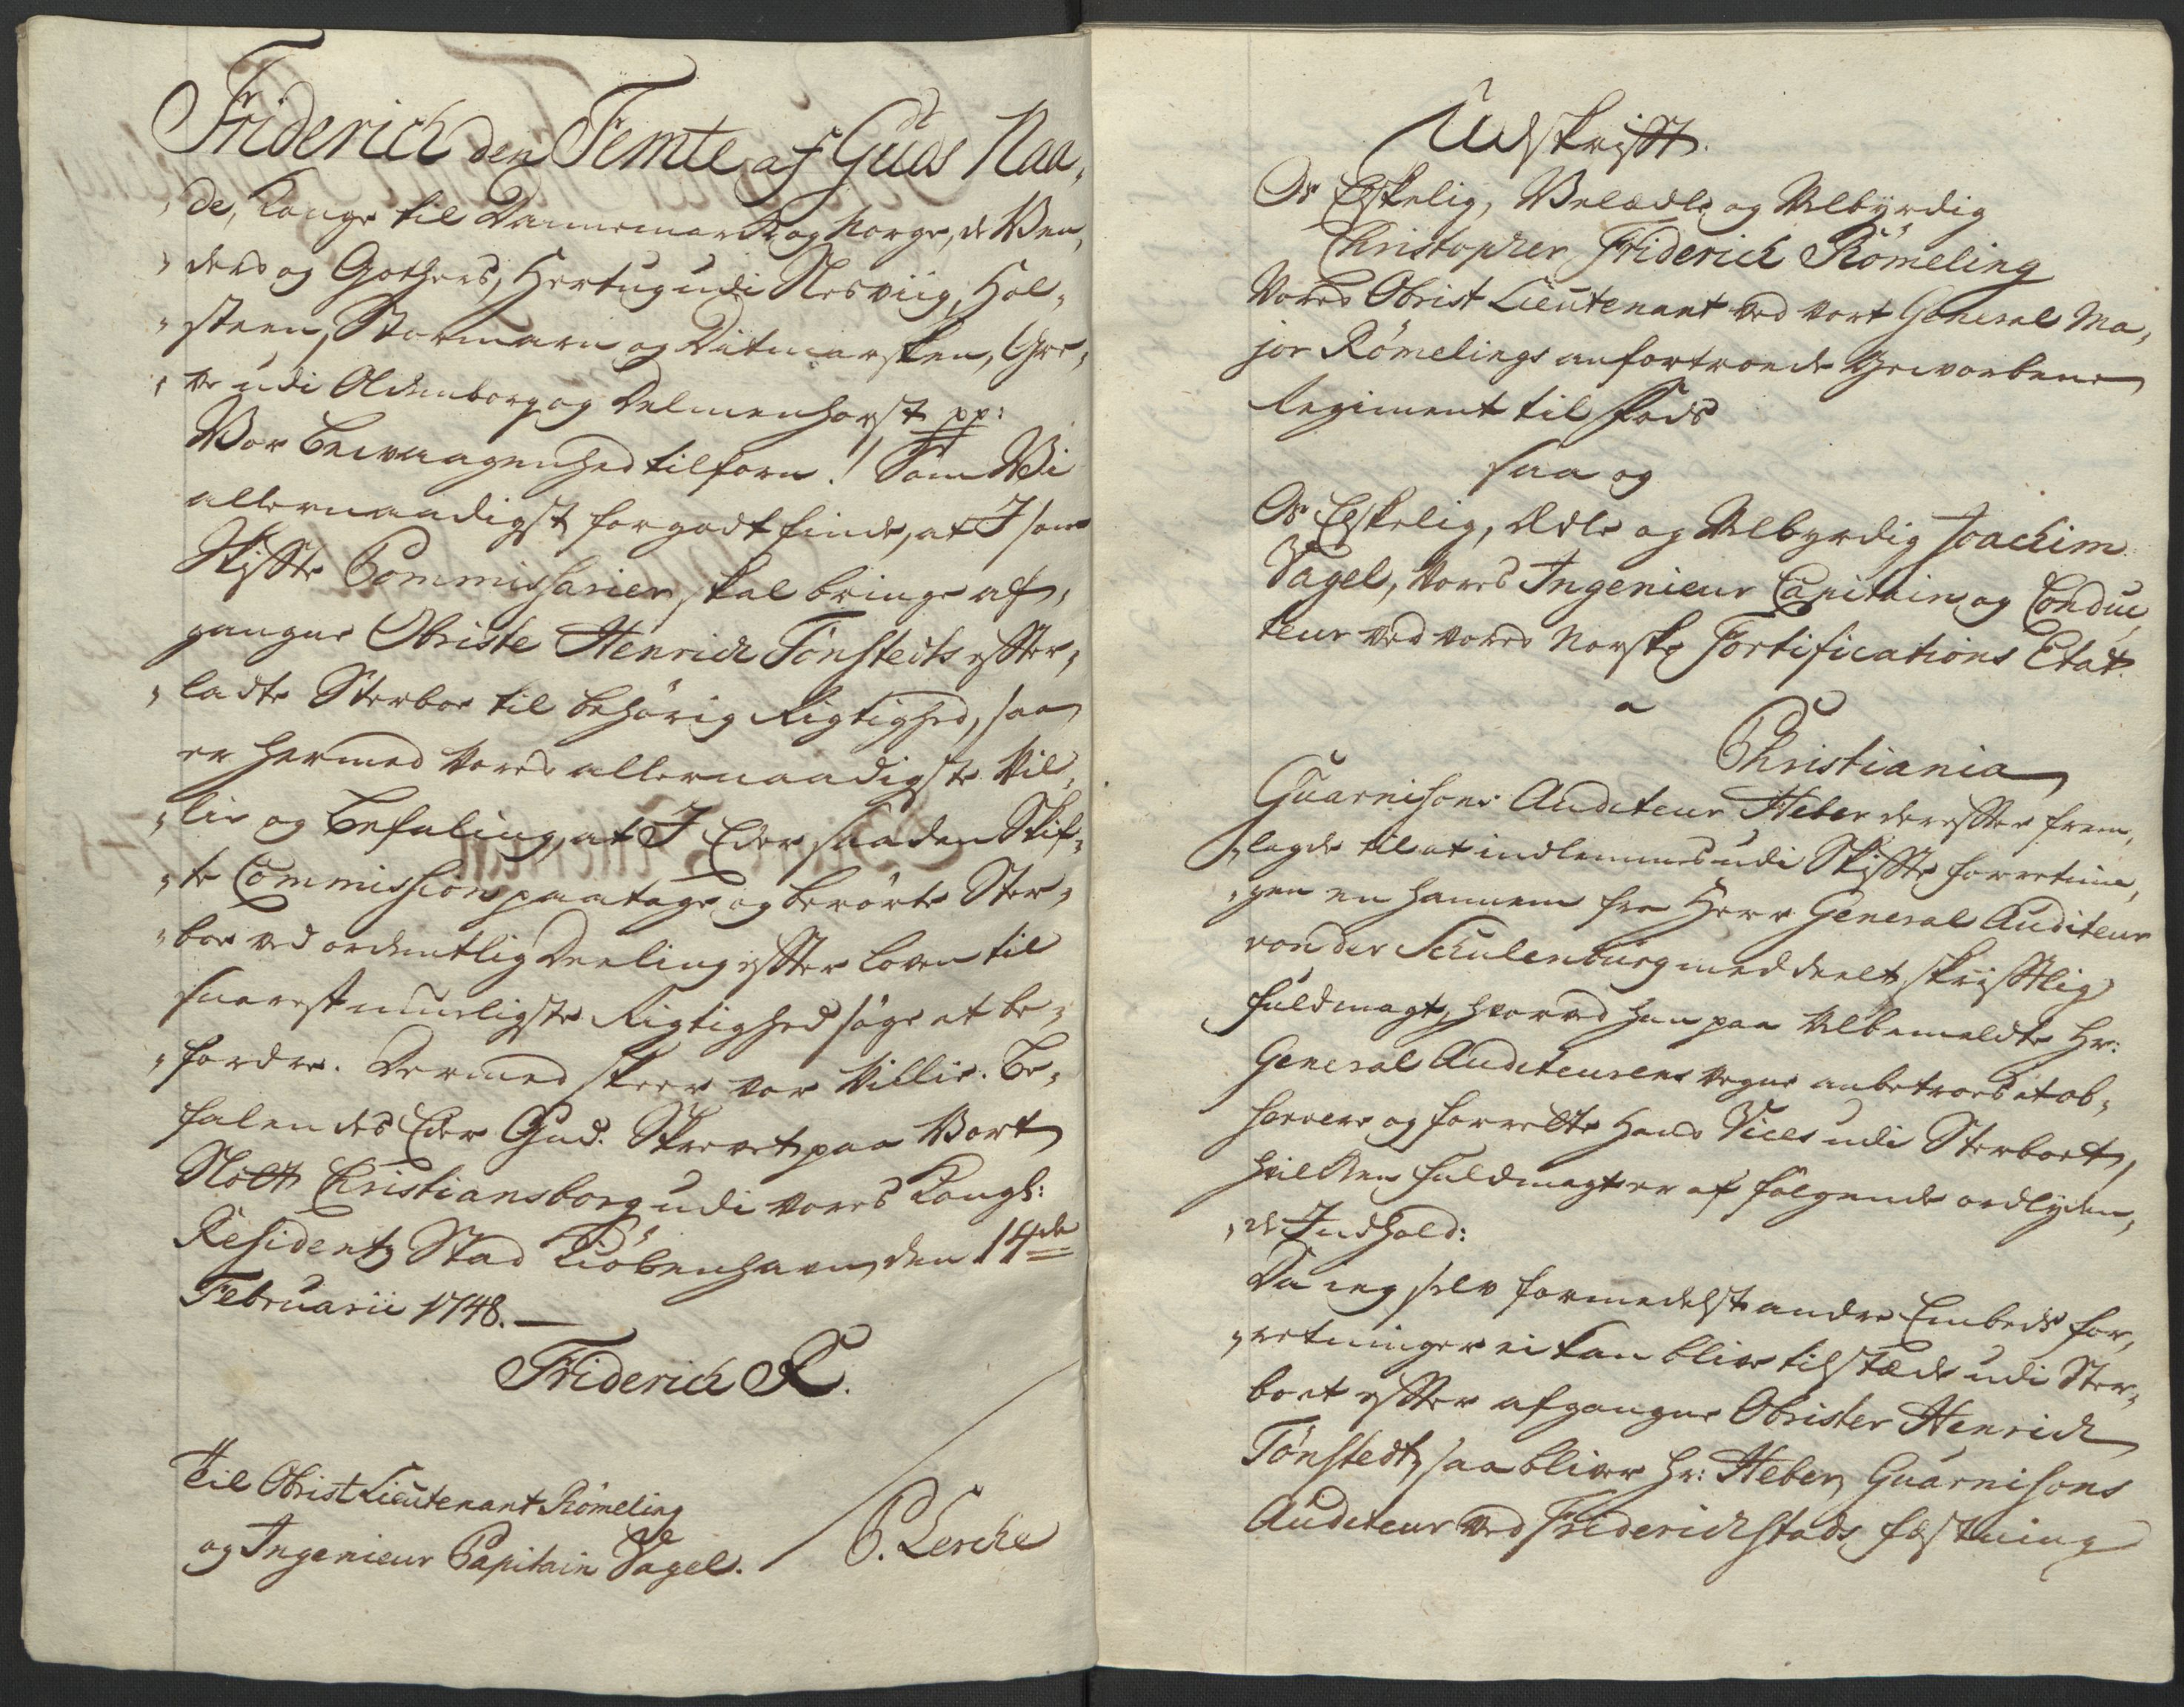 Friderich den Femte af Guds Naa,
,, de, Konge til Dannemark og Norge, de Ven,
,, ders og Gothers, Hertug udi Slesviig, Hol,
,, steen, Stormarn og Ditmarsken, Gre,
,, ve udi Oldenborg og Delmenhorst pp:
Vor bevaagenhed tilforn! Som Vi
allernaadigst forgodt finde, at I som
Skiffte Commissarier skal bringe af,
gangne Obriste Henrich Tönstedts effter,
,, ladte Sterboe til behörig Rigtighed, saa
er hermed Vores allernaadigste Vil,
,, lie og Befaling, at I Eder saaden Skif,
,, te Commission paatage og berörte Ster,
,, boe ved ordentlig Deeling effter Loven til
snarest mueligste Rigtighed söge at be,
,, fordre. Dermed skeer vor Villie. Be,
falendes Eder Gud. Skrevet paa Vort
Slott Christiansborg udi vores Kongl:
Residentz Stad Kiöbenhavn, den 14de
Februarii 1748.
Friderich R.
Til Obrist Lieutenant Römeling
og Ingenieur Capitain Vagel.
P. Lerche
Udskrifft.
Os Elskelig, Velædle og Velbyrdig
Christopher Friderich Römeling
Vores Obrist Lieutenant ved vort General Ma,
jor Römelings anfortroede Gevorbene
Regiment til Fods
saa og
Os Elskelig, Ædle og Velbyrdig Joachim
Vagel, Vores Ingenieur Capitain og Conduc,
teur ved vores Norske Fortifications Etat.
a
Christiania
Guarnisons Auditeur Heber dereffter frem,
,, lagde til at indlemmes udi Skiffte forretnin,
,, gen en hannem fra Herr General Auditeur
von der Schulenburg meddeelt skrifftlig
fuldmagt, hvorved han paa Velbemeldte Hr:
General Auditeurens Vegne anbetroes at ob,
servere og forrette hans Vices udi Sterboet,
hvilken fuldmagt er af fölgende ordlyden,
,, de Indhold:
Da ieg selv formedelst andre Embeds for,
,, retninger ei kan blive tilstæde udi Ster,
boet effter afgangne Obrister Henrich
Tönstedt, saa bliver Hr: Heber, Guarnisons
Auditeur ved Friderichstads Fæstning